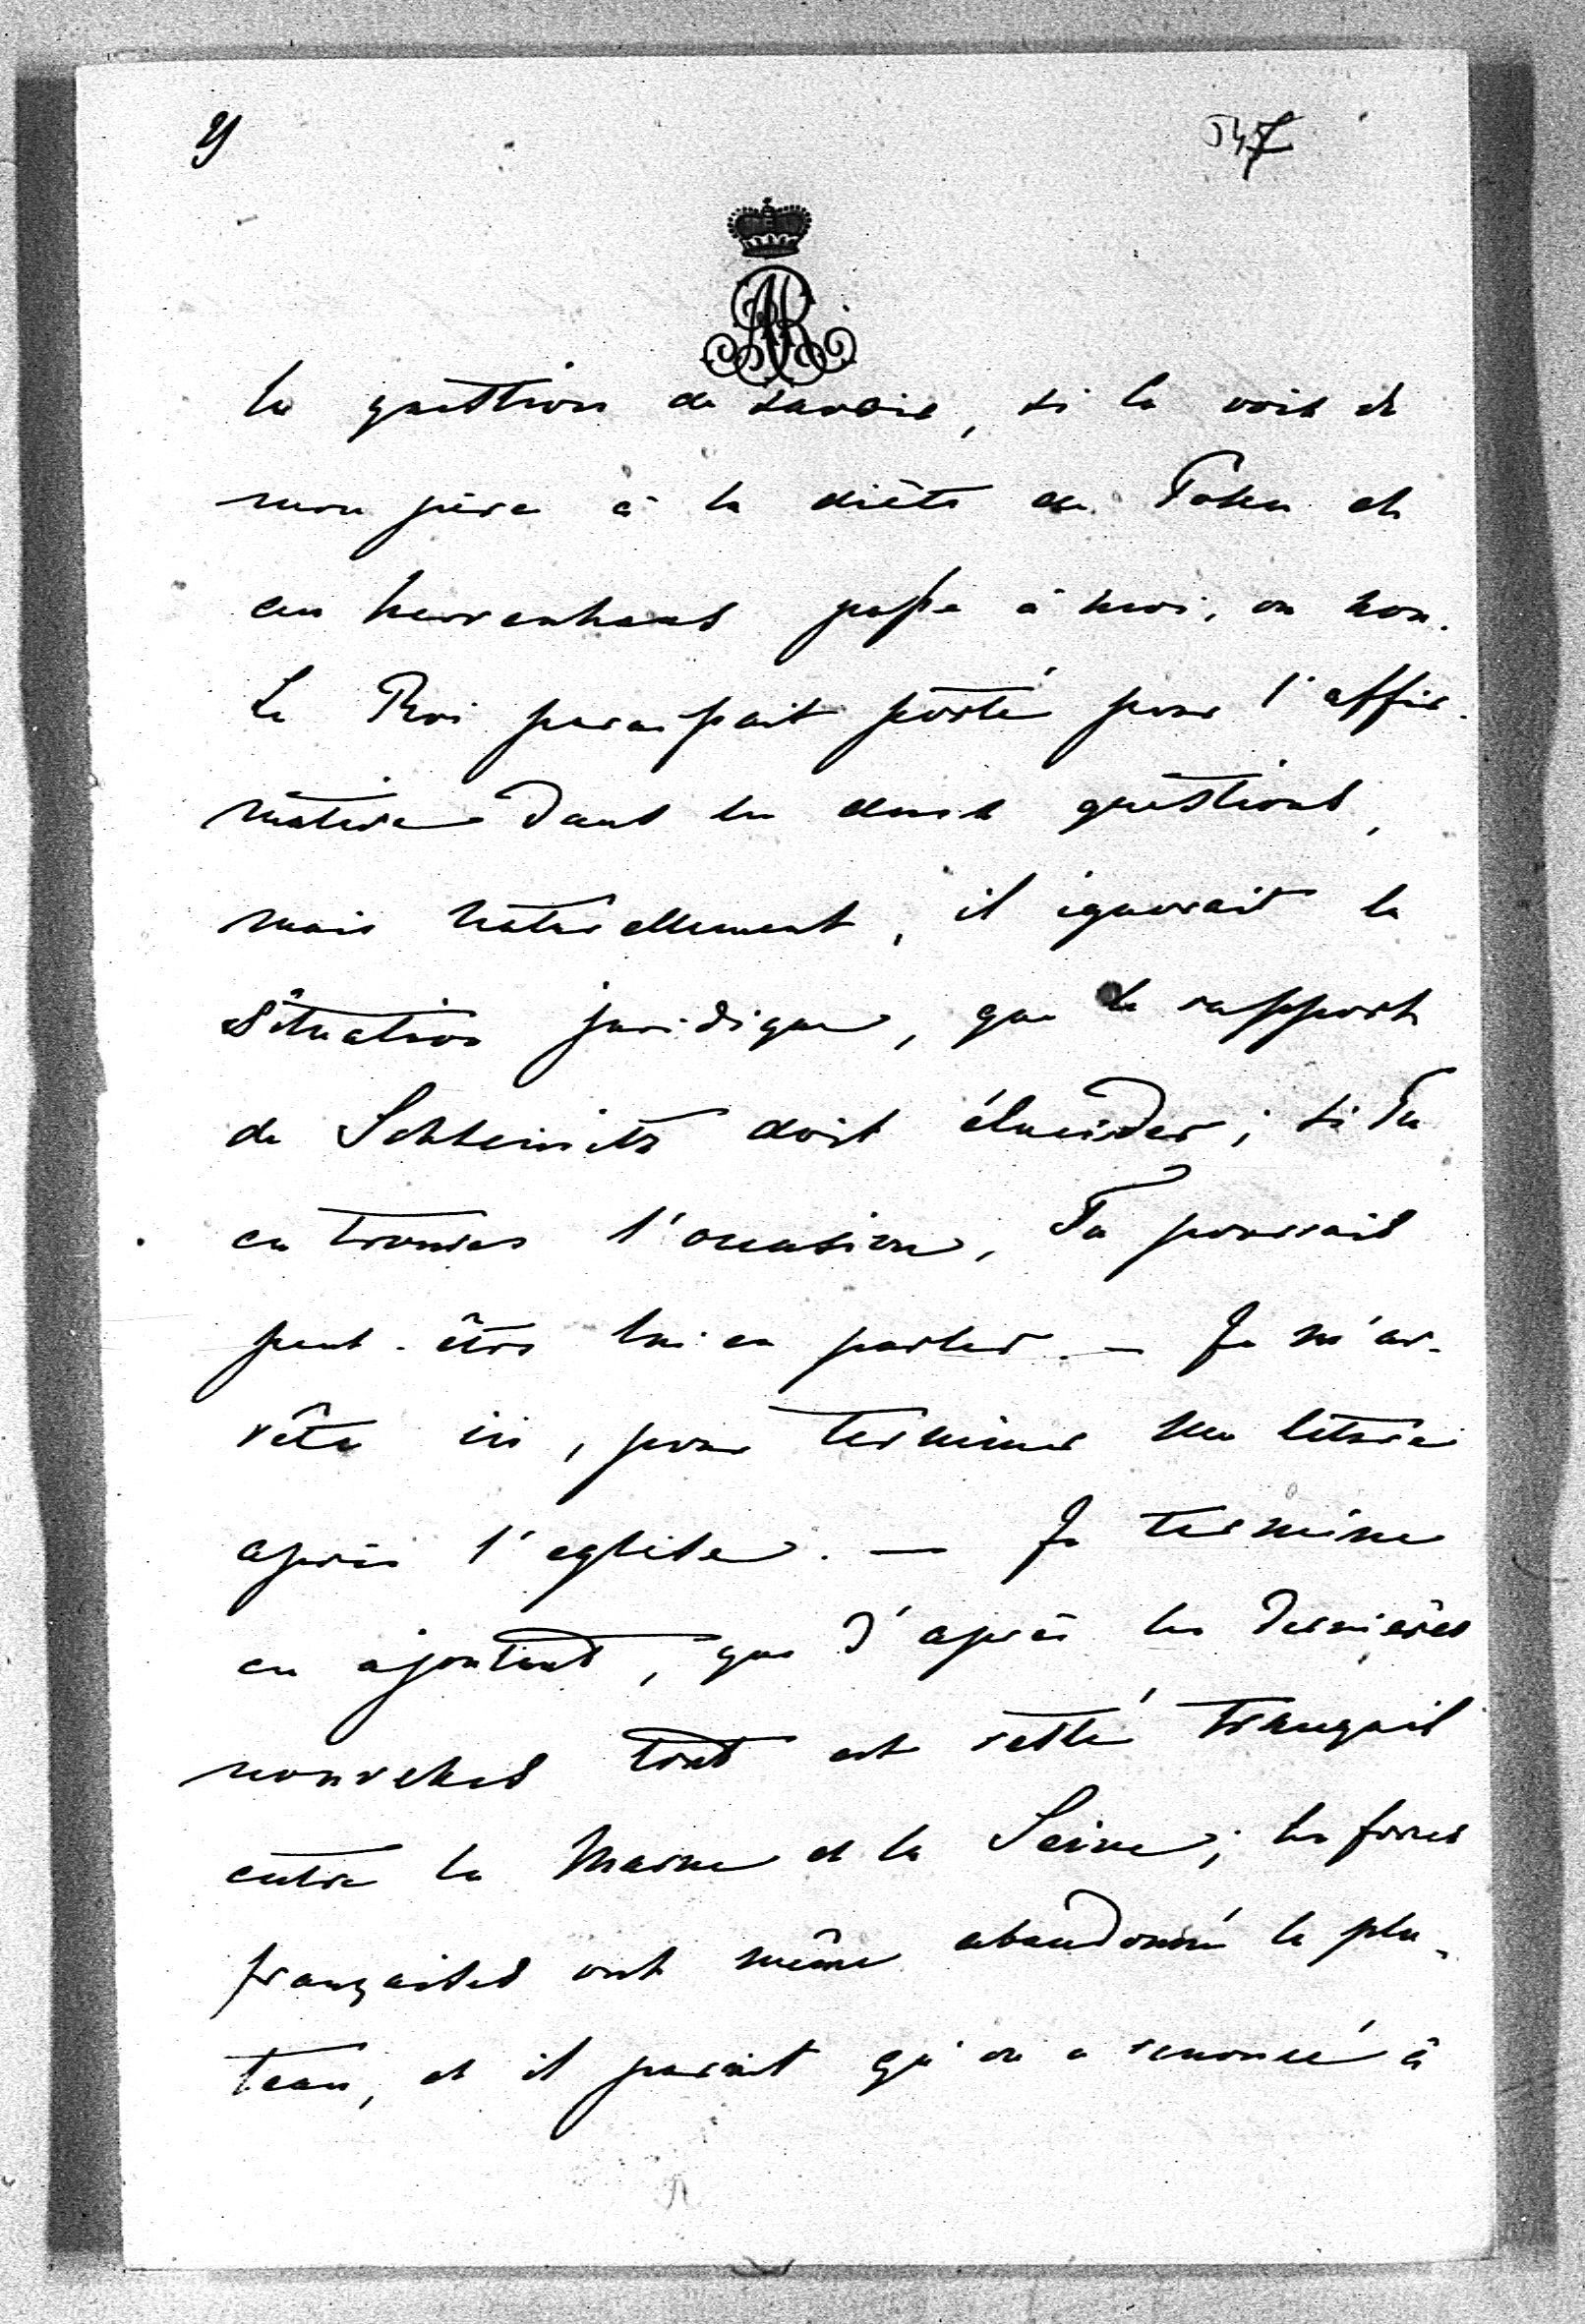 547
AR
la question de savoir, si la voix de
mon père à la diète de Posen et
au herrenhaus passe à moi, ou non.
Le Roi paraissait porté pour l'affir-
mative dans les deux questions,
mais naturellement, il ignorait la
situation juridique, que le rapport
de Schleinitz doit élucider; si Tu
en trouves l'occasion, Tu pourrais
peut-être lui en parler. — Je m'ar-
rête ici, pour terminer ma lettre
après l'eglise. — Je termine
en ajoutant, que d'après les dernières
nouvelles tout est resté tranquil
entre la Marne et la Seine; les forces
françaises ont même abandonné le pla-
teau, et il parait qu'on a renoncé à